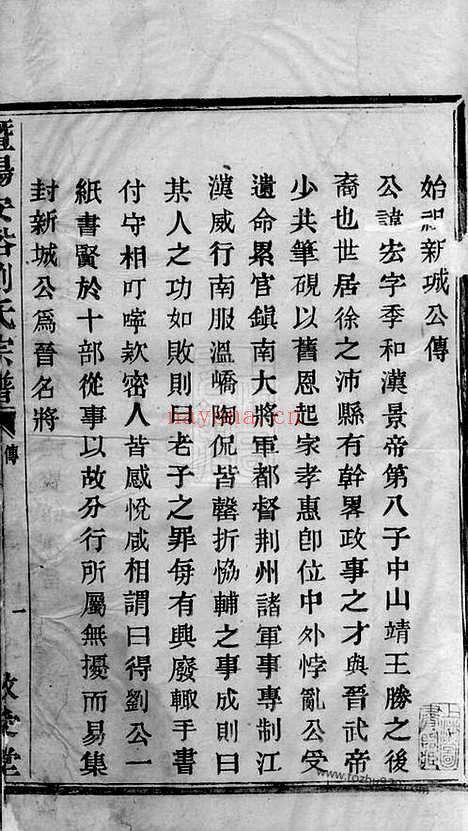 始祖新城公傳
公諱宏字季和漢景帝第八子中山靖王勝之後
裔也世居徐之沛縣有幹畧政事之才與晋武帝
少共筆硯以舊恩起家孝惠卽位中外悖亂公受
遺命累官鎭南大將軍都督荆州諸軍事專制江
漢威行南服溫嶠陶侃皆罄折恊輔之事成則曰
某人之功如敗則曰老子之罪每有興廢輙手書
付守相叮嚀欵密人皆感悅咸相謂曰得劉公一
紙書賢於十部從事以故分行所屬無擾而易集
封新城公爲晉名將
暨陽安俗劉氏宗譜
傳
一
敦睦堂
nayona.cn
www.fozhu920.com